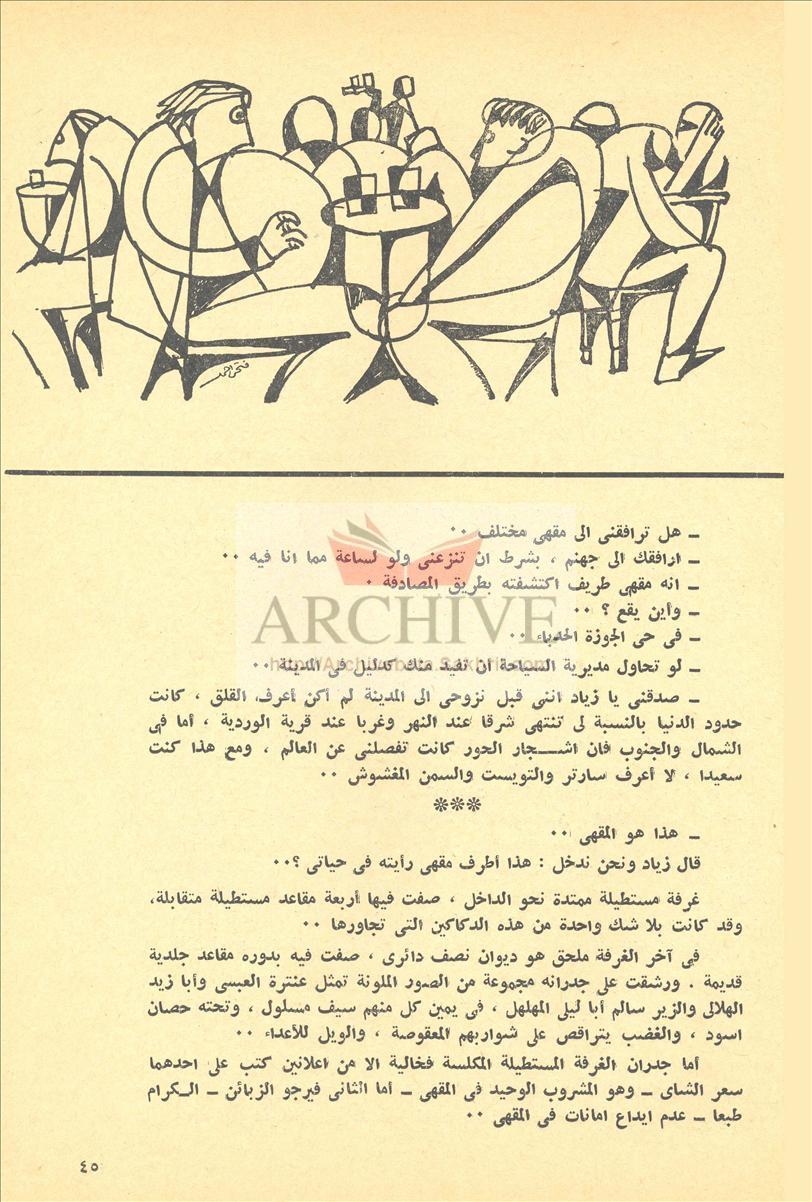 فتحى احمد
ـ هل ترافقنى الى مقهى مختلف ٠٠
ـ ارافقك الى جهنم ، بشرط ان تنزعنى ولو لساعة مما انا فيه ٠٠
ـ انه مقهى طريف اكتشفته بطريق المصادفة ٠
ـ وأين يقع ؟ ٠٠
ARCHIVE
ـ فى حى الجوزة الحدباء ٠٠
ـ لو تحاول مديرية السياحة أن تفيد منك كدليل فى المدينة ٠٠
http://Archivebeta.Sakhrit.com
ـ صدقنى يا زياد اننى قبل نزوحى الى المدينة لم أكن أعرف القلق ، كانت
حدود الدنيا بالنسبة لى تنتهى شرقا عند النهر وغربا عند قرية الوردية ، أما فى
الشمال والجنوب فان اشـــجار الحور كانت تفصلنى عن العالم ، ومع هذا كنت
سعيدا ، لا أعرف سارتر والتويست والسمن المغشوش ٠٠
***
ـ هذا هو المقهى ٠٠
قال زياد ونحن ندخل : هذا أطرف مقهى رأيته فى حياتى ؟٠٠
غرفة مستطيلة ممتدة نحو الداخل ، صفت فيها أربعة مقاعد مستطيلة متقابلة،
وقد كانت بلا شك واحدة من هذه الدكاكين التى تجاورها ٠٠
فى آخر الغرفة ملحق هو ديوان نصف دائرى ، صفت فيه بدوره مقاعد جلدية
قديمة . ورشقت على جدرانه مجموعة من الصور الملونة تمثل عنترة العبسى وأبا زيد
الهلالى والزير سالم أبا ليلى المهلهل ، فى يمين كل منهم سيف مسلول ، وتحته حصان
اسود ، والغضب يتراقص على شواربهم المعقوصة ، والويل للأعداء ٠٠
أما جدران الغرفة المستطيلة المكلسة فخالية الا من اعلانين كتب على احدهما
سعر الشاى ـ وهو المشروب الوحيد فى المقهى ـ أما الثانى فيرجو الزبائن ـ الــكرام
طبعا ـ عدم ايداع امانات فى المقهى ٠٠
٤٥